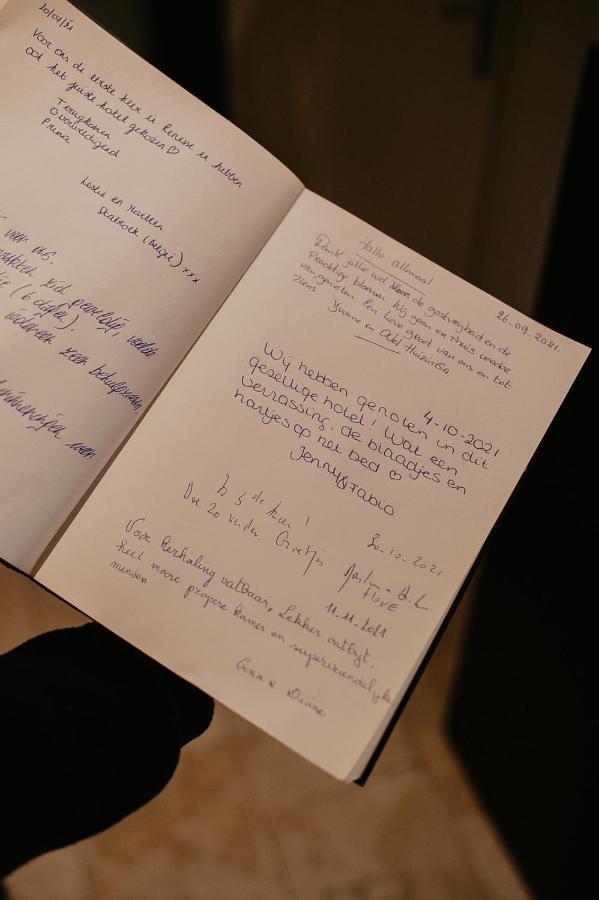 20/07/21
Voor ons de eerste keer in Renesse en hebben
ook het juiste hotel gekozen ♡
Terugkomen
Overweldigend
Prima
Leslie en
Stabroek (België) xxx
voor ons.
zich geweldig,
(6 dagen).
zeer behulpzaam,
Hallo allemaal
26-09-2021.
Dank jullie wel voor de gastvrijheid en de
Prachtige bloemen wij gaan er thuis verder
van genieten Een lieve groet van ons en tot
Ziens
Yvonne en Abel Huizinga
4-10-2021
Wij hebben genoten in dit
gesellige hotel! Wat een
verrassing, de blaadjes en
hartjes op het bed ♡
Jenny & Fabio
20-10-2021
Zo 5 de keer!
Doe zo verder Groetjes
HOVE
11-11-2021
Voor herhaling vatbaar, Lekker ontbijt,
heel mooie propere kamer en supervriendelijke
mensen
Gina & Diane